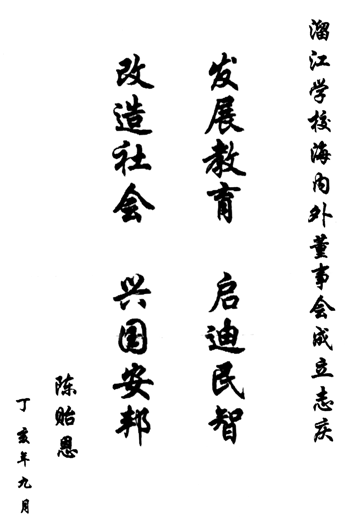 溜江学校海内外董事会成立志庆
发展教育 启迪民智
改造社会 兴国安邦
陈贻恩
丁亥年九月